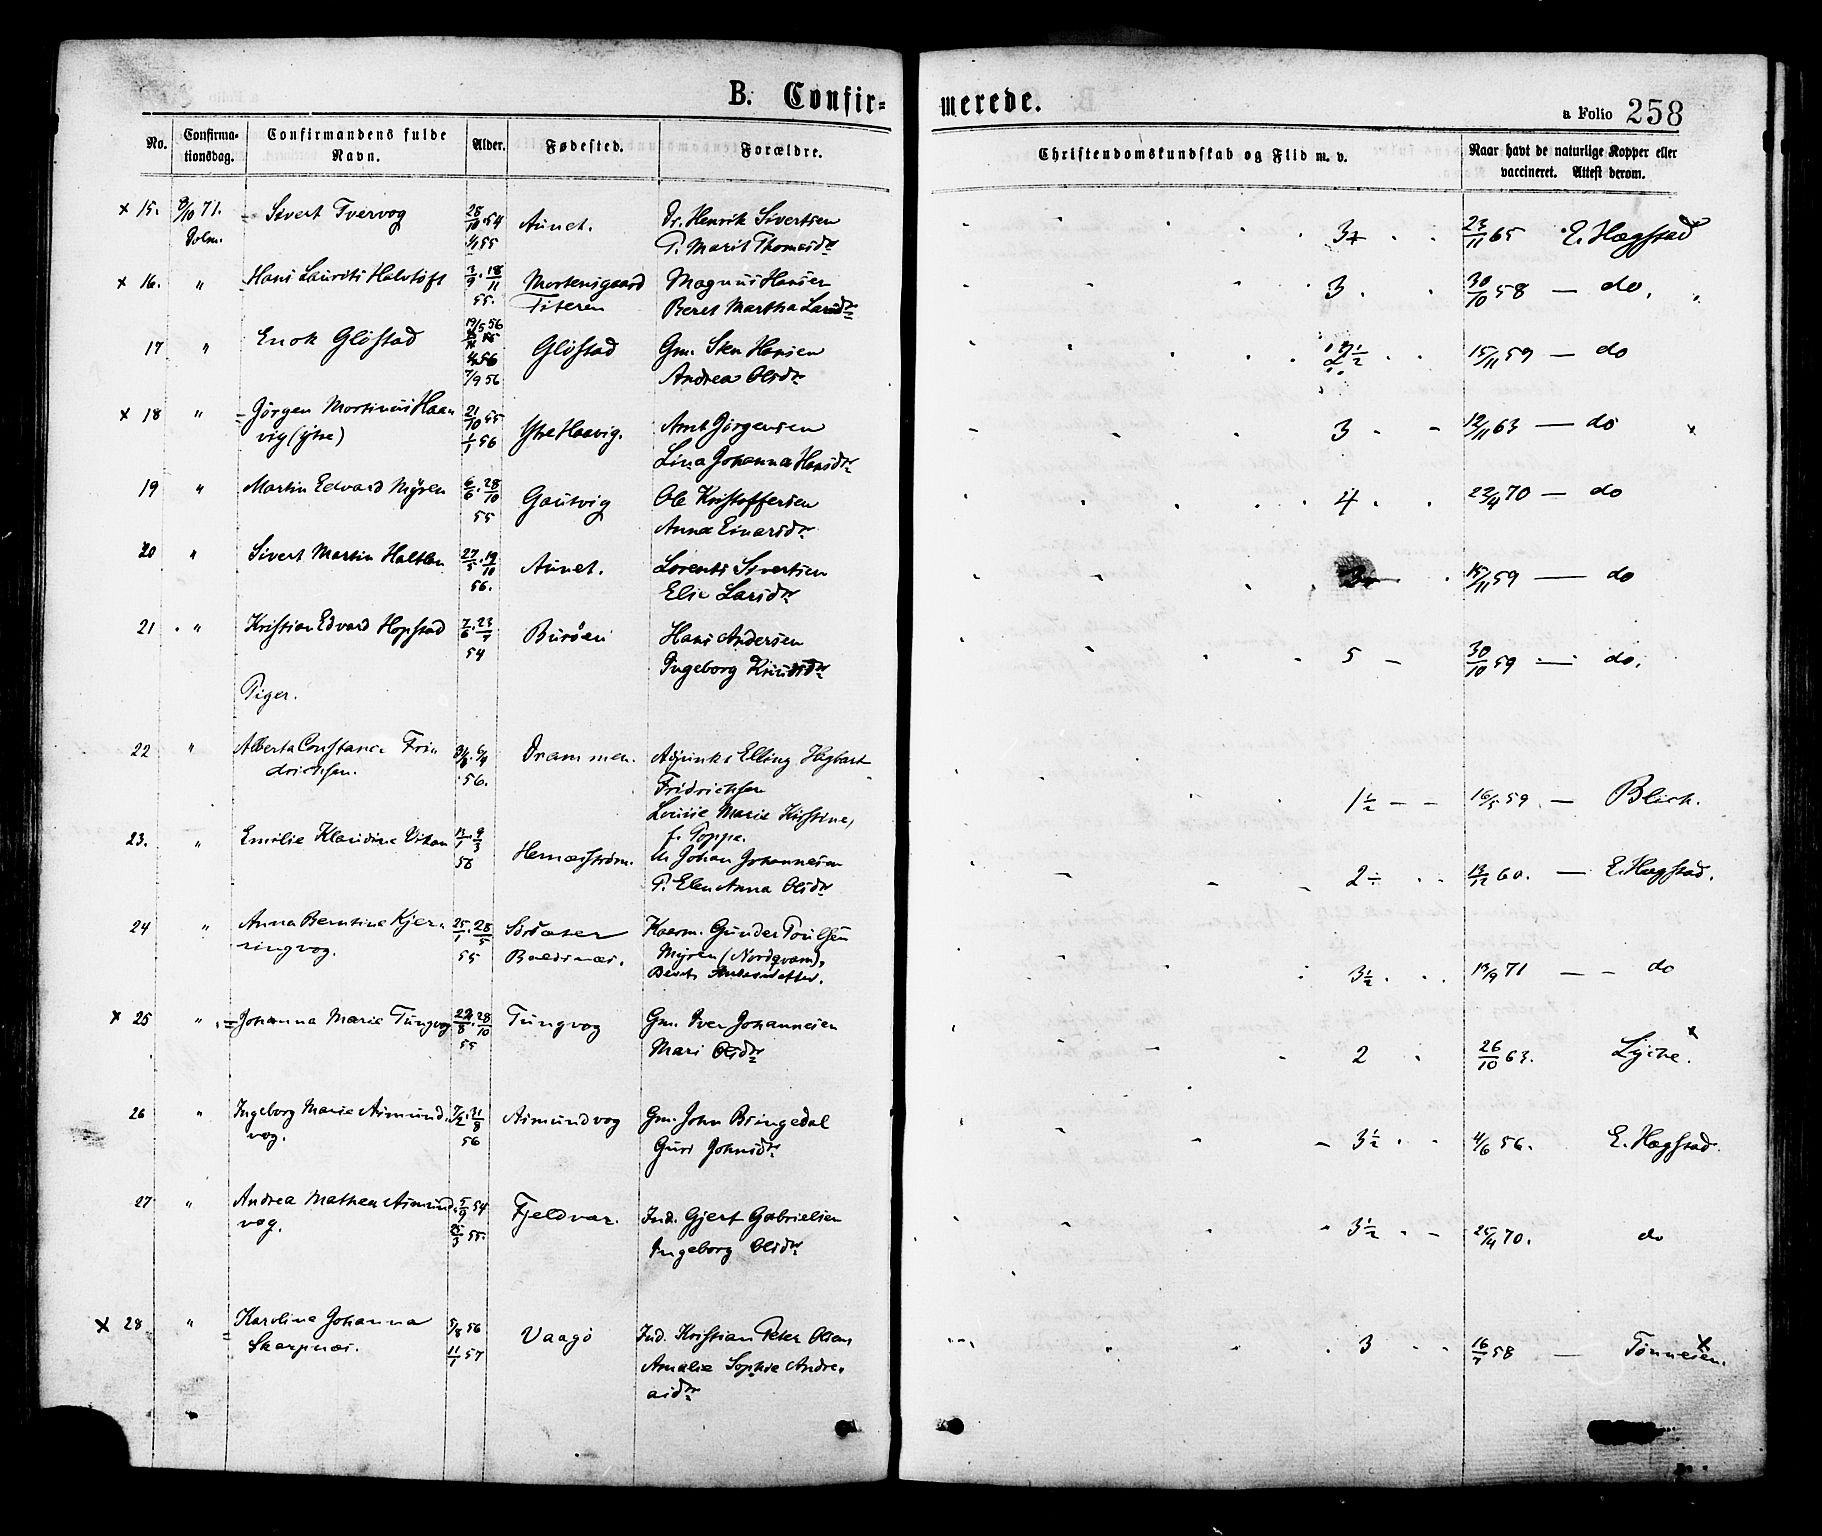 B. Confir-
merede.
a Folio 258
No.
Confirma-
tionsdag.
Confirmandens fulde
Navn.
Alder.
Fødested.
Forældre.
Christendomskundskab og Flid m. v.
Naar havt de naturlige Kopper eller
vaccineret. Attest derom.
x 15. 8/10 71. Sivert Tvervog 28/10 54 Aunet. Dr. Henrik Sivertsen 3 23/11 65 E. Hegstad
Dolm. 1/1 55 P. Marit Thomasdr
x 16. " Hans Laurits 3/9 . 18/11 Mortensgaard Magnus Hansen 3 . 30/10 58 — do.
55. Titeren Beret Martha Larsdr
17 " Enok Glöstad 19/5 56 Glöstad Gm. Sten Hansen 15/11 59 — do
7/9 56 Andrea Olsdr
x 18 " Jørgen Mortinus Haa 21/10 55 Ytre Haavig. Arnt Jørgensen 3 12/11 63 — do x
vig (ytre) 1/1 56 Lina Johanna Hansdr
19 " Martin Edvard Myren 6/6 . 28/10 Gautvig Ole Kristoffersen 4 22/4 70 — do
55 Anna Einarsdr
20 " Sivert Martin 27/5 . 19/10 Aunet. Lorents Sivertsen 15/11 59 — do
56. Elie Larsdr
21 " Kristian Edvard Hopstad 7/6 . 23/7 Buröen Hans Andersen 5 — 30/10 59 — do.
54 Ingeborg Knudsdr
Piger.
22 " Alberta Constance Fri Drammen. Adjunkt Elling Hagbart
drichsen. 56. Fridrichsen
Louise Marie Kirstine, 1 1/2 — — 16/5 59 . — Blich.
f. Poppe.
23. " Emilie Klaudine Vikan 13/1 . 9/3 Johan Johannesen
56 P. Elen Anna Olsdr 2 ÷ 13/12 60. — E. Hegstad.
24 " Anna Berntine Kjer- 25/1 . 28/5 Kaarm. Gunder Poulsen
ringvog. 55 Baldsnæs. Myren (Nordqvam),
3 1/2 13/9 71 — — do
x 25 " Johanna Marie Tungvog 22/8 . 28/10 Tungvog Gm. Iver Johannesen
55 Mari Olsdr 2 26/10 63. Lyche. x
26 " Ingeborg Marie Asmund- 7/2 . 31/8 Asmundvog Gm. John Bringedal
vog. 56 Guri Johnsdr — 3 1/2 4/6 56. E. Hegstad.
27 " Andrea Mathea Asmund- 5/9 54 Fjeldvær. Ind. Gjert Gabrielsen 3 1/2 25/4 70. do
vog. 25/3 55. Ingeborg Olsdr
x 28 " Karoline Johanna 5/8 56 Vaagö Ind. Kristian Peter Olsen 3 16/7 58 — Tönnesen. x
Skarpnæs. 11/1 57 Amalie Sophie Andre-
asdr